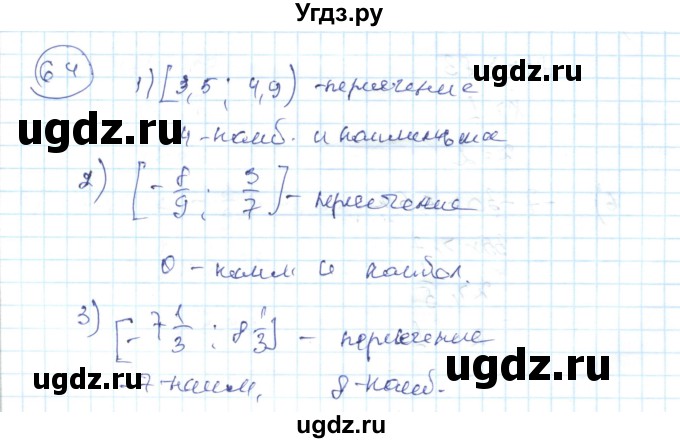 Угдз.ру
64
1) [3,5 ; 4,9) - пересечение
4 - наиб. и наименьшее
2) [-8/9 ; 3/7] - пересечение
0 - наим и наибол.
3) [-7 1/3 ; 8 1/3] - пересечение
-7 - наим, 8 - наиб.
ugdz.ru
ugdz.ru
ugdz.ru
ugdz.ru
ugdz.ru
ugdz.ru
ugdz.ru
ugdz.ru